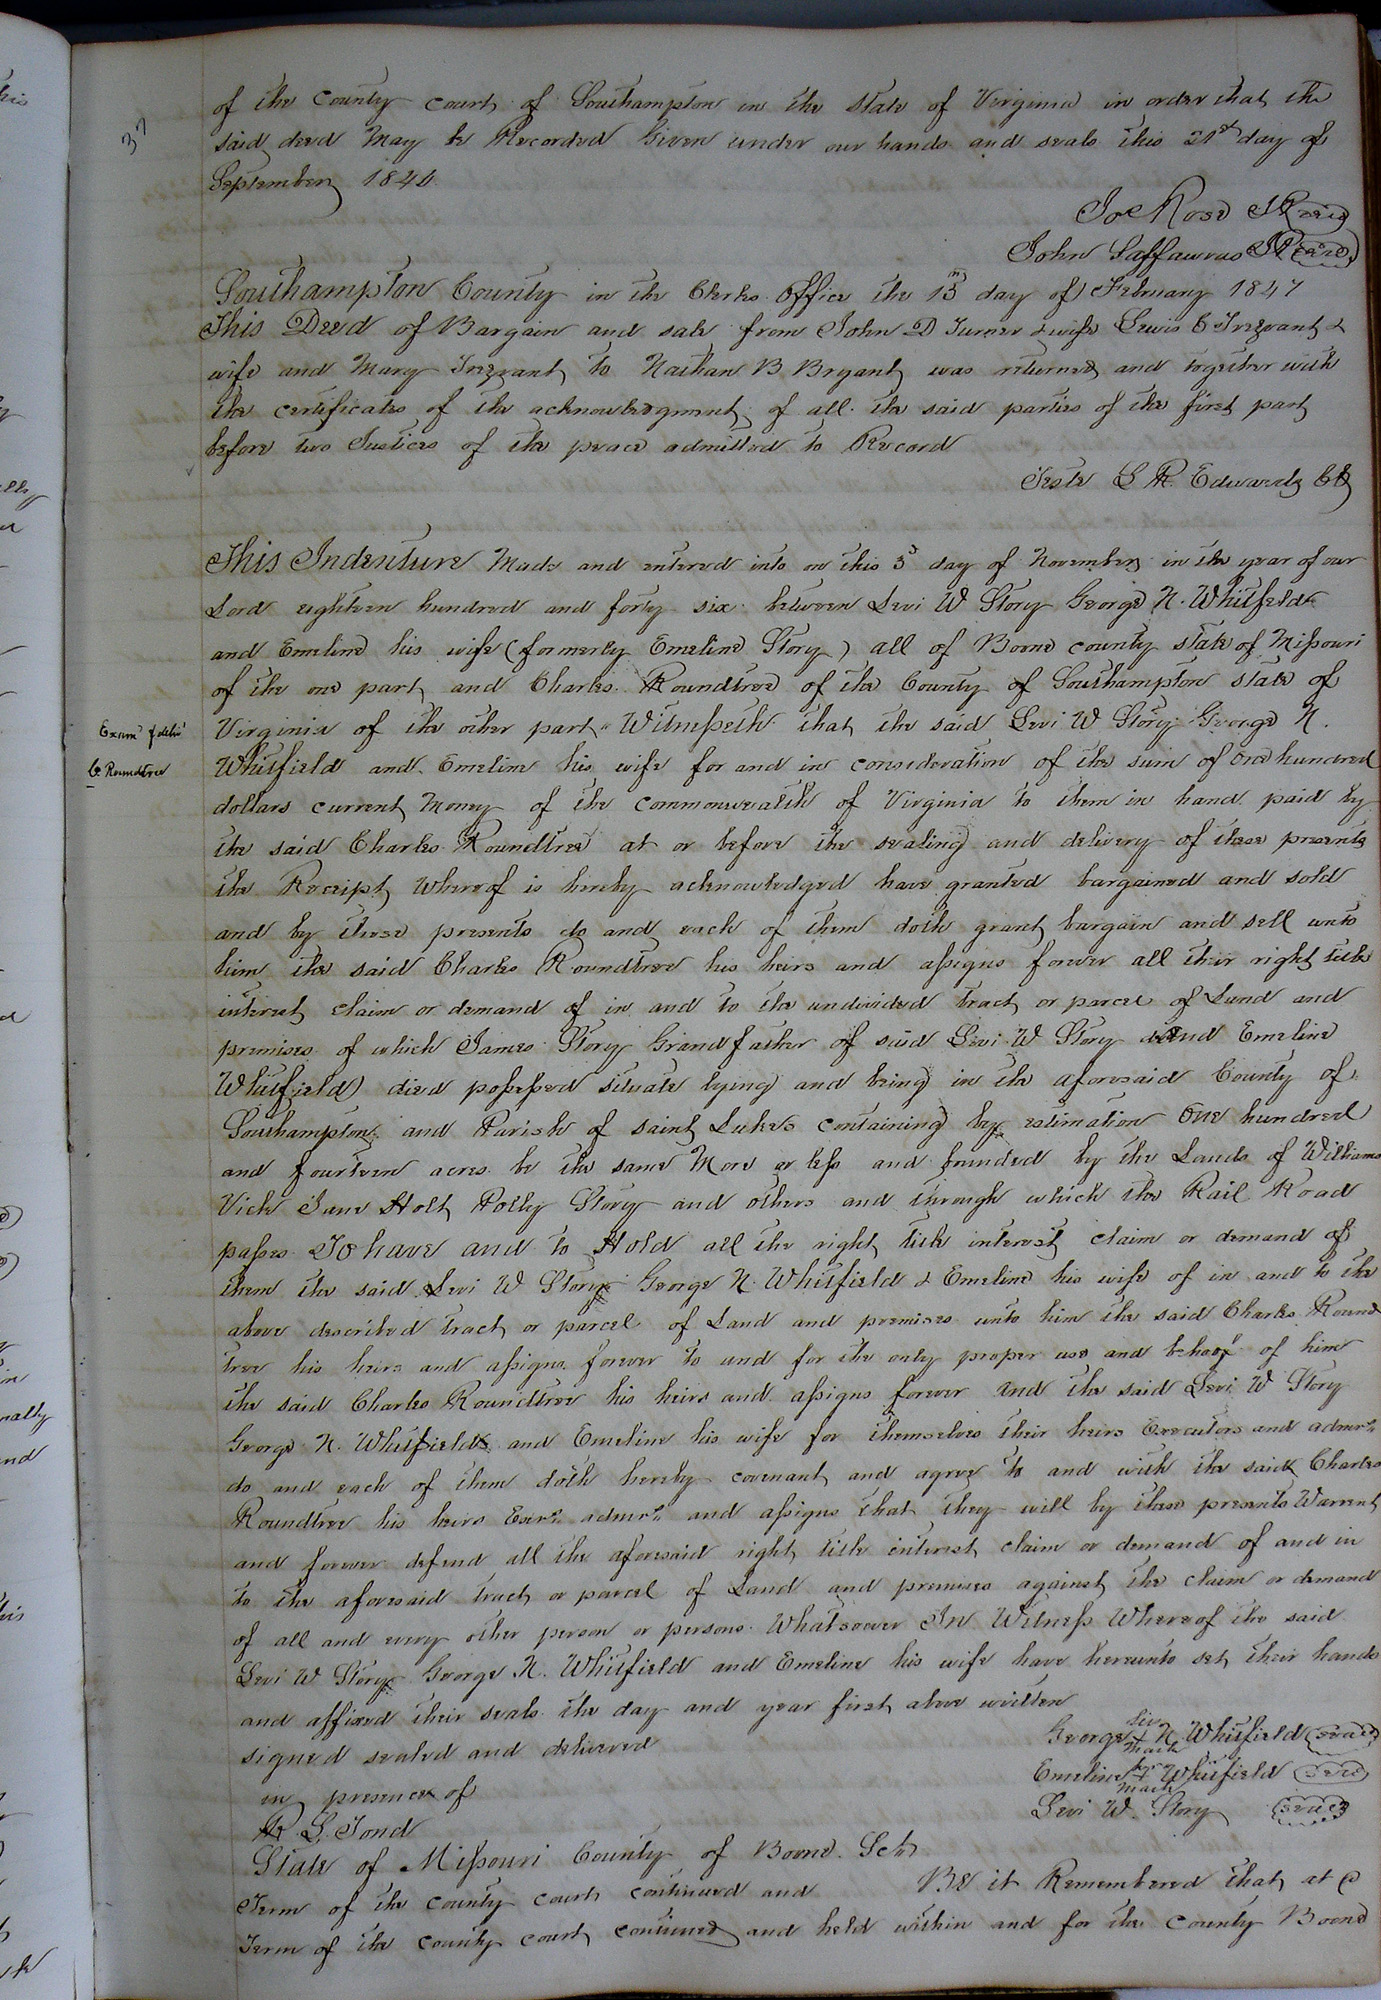 37
of the County Court of Southampton in the State of Virginia in order that the
said deed May be Recorded Given under our hands and seals this 21st day of
September 1844
Jo Rose JP seal
John Saffarrans JP seal
Southampton County in the Clerks Office the 15th day of February 1847
This Deed of Bargain and sale from John D Turner & wife Lewis C Trezvant &
wife and Mary Trezvant to Nathan B Bryant was returned and together with
the certificates of the acknowledgment of all the said parties of the first part
before two Justices of the peace admitted to Record
Teste L R. Edwards Clk
This Indenture Made and entered into on this 3d day of November in the year of our
Lord eighteen hundred and forty six between Levi W Story George N. Whitfield
and Emeline his wife (formerly Emeline Story) all of Boone county state of Missouri
of the one part and Charles Roundtree of the County of Southampton State of
Exam d & deld
C Roundtree
Virginia of the other part Witnesseth that the said Levi W Story George N.
Whitfield and Emeline his wife for and in consideration of the sum of one hundred
dollars current Money of the commonwealth of Virginia to them in hand paid by
the said Charles Roundtree at or before the sealing and delivery of these presents
the Receipt Whereof is hereby acknowledged have granted bargained and sold
and by these presents do and each of them doth grant bargain and sell unto
him the said Charles Roundtree his heirs and assigns forever all their right title
interest claim or demand of in and to the undivided tract or parcel of Land and
premises of which James Story Grandfather of said Levi W Story and Emeline
Whitfield died possessed situate lying and being in the aforesaid County of
Southampton and Parish of saint Lukes containing by estimation One hundred
and fourteen acres be the same More or less and bounded by the Lands of Williams
Vick Jane Holt Polly Story and others and through which the Rail Road
passes To have and to Hold all the right title interest claim or demand of
them the said Levi W Story George N. Whitfield & Emeline his wife of in and to the
above described tract or parcel of Land and premises unto him the said Charles Round
tree his heirs and assigns forever to and for the only proper use and behoof of him
the said Charles Roundtree his heirs and assigns forever And the said Levi W Story
George N. Whitfield and Emeline his wife for themselves their heirs Executors and admrs
do and each of them doth hereby covenant and agree to and with the said Charles
Roundtree his heirs Exers admrs and assigns that they will by these presents Warrent
and forever defend all the aforesaid right title interest claim or demand of and in
to the aforesaid tract or parcel of Land and premises against the claim or demand
of all and every other person or persons Whatsoever In Witness Whereof the said
Levi W Story George N. Whitfield and Emeline his wife have hereunto set their hands
and affixed their seals the day and year first above written
signed sealed and delivered
in presence of
R S Tond
George his + mark N. Whitfield seal
Emeline her + mark Whitfield seal
Levi W. Story seal
State of Missouri County of Boone Sct
Be it Remembered that at a
Term of the county court continued and
Term of the county court continued and held within and for the County Boone